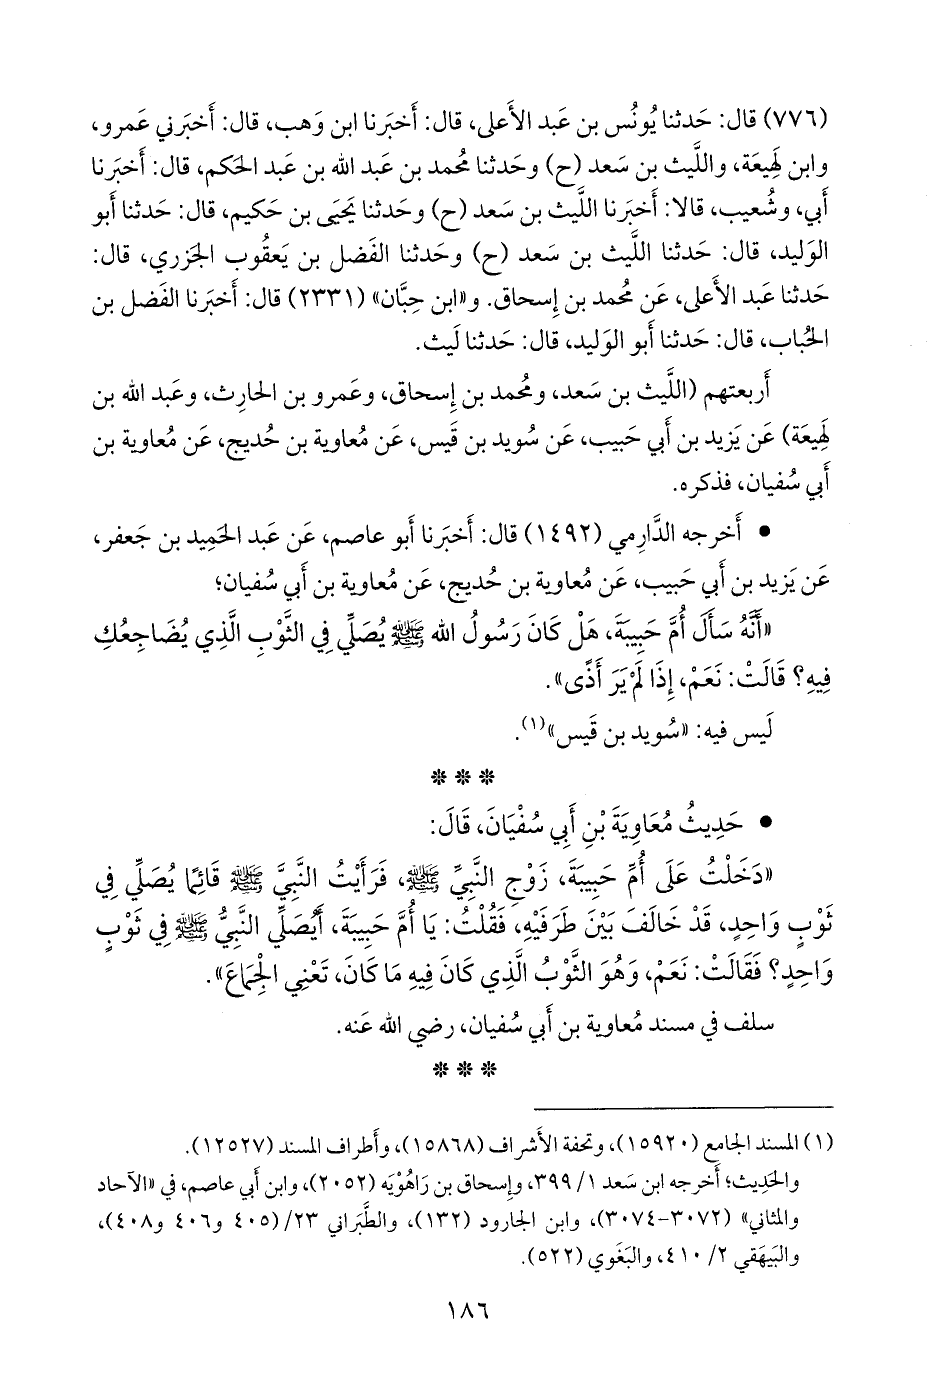 (٧٧٦) قال: حَدثنا يُونُس بن عَبد الأَعلى، قال: أَخبَرنا ابن وَهب، قال: أَخبَرني عَمرو،
وابن لَهِيعَة، واللَّيث بن سَعد (ح) وحَدثنا مُحمد بن عَبد الله بن عَبد الحَكم، قال: أَخبَرنا
أَبي، وشُعيب، قالا: أَخبَرنا اللَّيث بن سَعد (ح) وحَدثنا يَحيَى بن حَكيم، قال: حَدثنا أَبو
الوَليد، قال: حَدثنا اللَّيث بن سَعد (ح) وحَدثنا الفَضل بن يَعقُوب الجَزري، قال:
حَدثنا عَبد الأَعلى، عَن مُحمد بن إِسحاق. و«ابن حِبَّان» (٢٣٣١) قال: أَخبَرنا الفَضل بن
الحُباب، قال: حَدثنا أَبو الوَليد، قال: حَدثنا لَيث.
أَربعتهم (اللَّيث بن سَعد، ومُحمد بن إِسحاق، وعَمرو بن الحارِث، وعَبد الله بن
لَهِيعَة) عَن يَزيد بن أَبي حَبيب، عَن سُويد بن قَيس، عَن مُعاوية بن حُديج، عَن مُعاوية بن
أَبي سُفيان، فذكره.
• أَخرجه الدَّارِمي (١٤٩٢) قال: أَخبَرنا أَبو عاصم، عَن عَبد الحَمِيد بن جَعفر،
عَن يَزيد بن أَبي حَبيب، عَن مُعاوية بن حُديج، عَن مُعاوية بن أَبي سُفيان؛
«أَنَّهُ سَأَلَ أُمَّ حَبِيبَةَ، هَلْ كَانَ رَسُولُ الله ﷺ يُصَلِّي فِي الثَّوْبِ الَّذِي يُضَاجِعُكِ
فِيهِ؟ قَالَتْ: نَعَمْ، إِذَا لَمْ يَرَ أَذًى».
لَيس فيه: «سُويد بن قَيس»(١).
* * *
• حَدِيثُ مُعَاوِيَةَ بْنِ أَبِي سُفْيَانَ، قَالَ:
«دَخَلْتُ عَلَى أُمِّ حَبِيبَةَ، زَوْجِ النَّبِيِّ ﷺ، فَرَأَيْتُ النَّبِيَّ ﷺ قَائِمًا يُصَلِّي فِي
ثَوْبٍ وَاحِدٍ، قَدْ خَالَفَ بَيْنَ طَرَفَيْهِ، فَقُلْتُ: يَا أُمَّ حَبِيبَةَ، أَيُصَلِّي النَّبِيُّ ﷺ فِي ثَوْبٍ
وَاحِدٍ؟ فَقَالَتْ: نَعَمْ، وَهُوَ الثَّوْبُ الَّذِي كَانَ فِيهِ مَا كَانَ، تَعْنِي الْجِمَاعَ».
سلف في مسند مُعاوية بن أَبي سُفيان، رضي الله عَنه.
* * *
(١) المسند الجامع (١٥٩٢٠)، وتحفة الأَشراف (١٥٨٦٨)، وأَطراف المسند (١٢٥٢٧).
والحَدِيث؛ أَخرجه ابن سَعد ١/ ٣٩٩، وإِسحاق بن رَاهُوْيَه (٢٠٥٢)، وابن أَبي عاصم، في «الآحاد
والمثاني» (٣٠٧٢-٣٠٧٤)، وابن الجارود (١٣٢)، والطَّبَراني ٢٣/ (٤٠٥ و٤٠٦ و٤٠٨)،
والبَيهَقي ٢/ ٤١٠، والبَغَوي (٥٢٢).
١٨٦